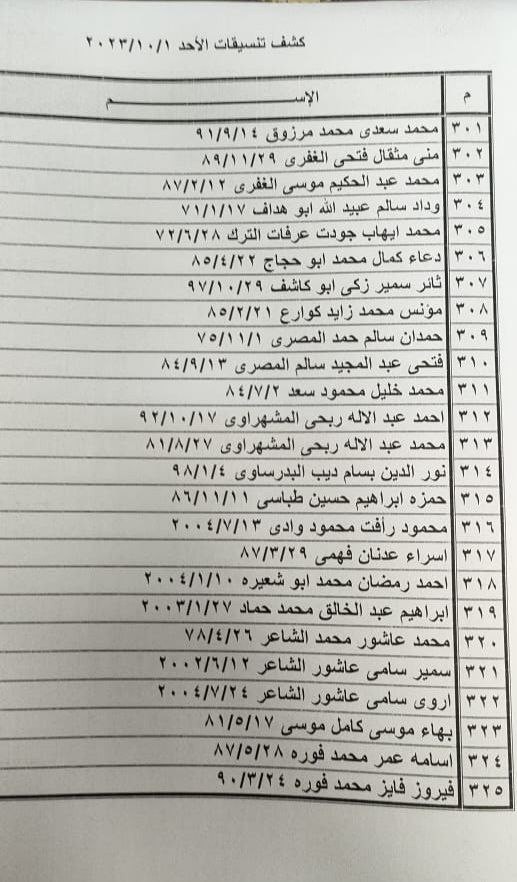 كشف تنسيقات الأحد ٢٠٢٣/١٠/١
م الإســـــــــــــــــم
٣٠١ محمد سعدى محمد مرزوق ٩١/٩/١٤
٣٠٢ منى مثقال فتحى الغفرى ٨٩/١١/٢٩
٣٠٣ محمد عبد الحكيم موسى الغفرى ٨٧/٢/١٢
٣٠٤ وداد سالم عبيد الله ابو هداف ٧١/١/١٧
٣٠٥ محمد ايهاب جودت عرفات الترك ٧٢/٦/٢٨
٣٠٦ دعاء كمال محمد ابو حجاج ٨٥/٤/٢٢
٣٠٧ ثائر سمير زكى ابو كاشف ٩٧/١٠/٢٩
٣٠٨ مؤنس محمد زايد كوارع ٨٥/٢/٢١
٣٠٩ حمدان سالم حمد المصرى ٧٥/١١/١
٣١٠ فتحى عبد المجيد سالم المصرى ٨٤/٩/١٣
٣١١ محمد خليل محمود سعد ٨٤/٧/٢
٣١٢ احمد عبد الاله ربحى المشهراوى ٩٢/١٠/١٧
٣١٣ محمد عبد الاله ربحى المشهراوى ٨١/٨/٢٧
٣١٤ نور الدين بسام ديب البدرساوى ٩٨/١/٤
٣١٥ حمزه ابراهيم حسين طباسى ٨٦/١١/١١
٣١٦ محمود رأفت محمود وادى ٢٠٠٤/٧/١٣
٣١٧ اسراء عدنان فهمى ٨٧/٣/٢٩
٣١٨ احمد رمضان محمد ابو شعيره ٢٠٠٤/١/١٠
٣١٩ ابراهيم عبد الخالق محمد حماد ٢٠٠٣/١/٢٧
٣٢٠ محمد عاشور محمد الشاعر ٧٨/٤/٢٦
٣٢١ سمير سامى عاشور الشاعر ٢٠٠٢/٦/١٢
٣٢٢ اروى سامى عاشور الشاعر ٢٠٠٤/٧/٢٤
٣٢٣ بهاء موسى كامل موسى ٨١/٥/١٧
٣٢٤ اسامه عمر محمد فوره ٨٧/٥/٢٨
٣٢٥ فيروز فايز محمد فوره ٩٠/٣/٢٤